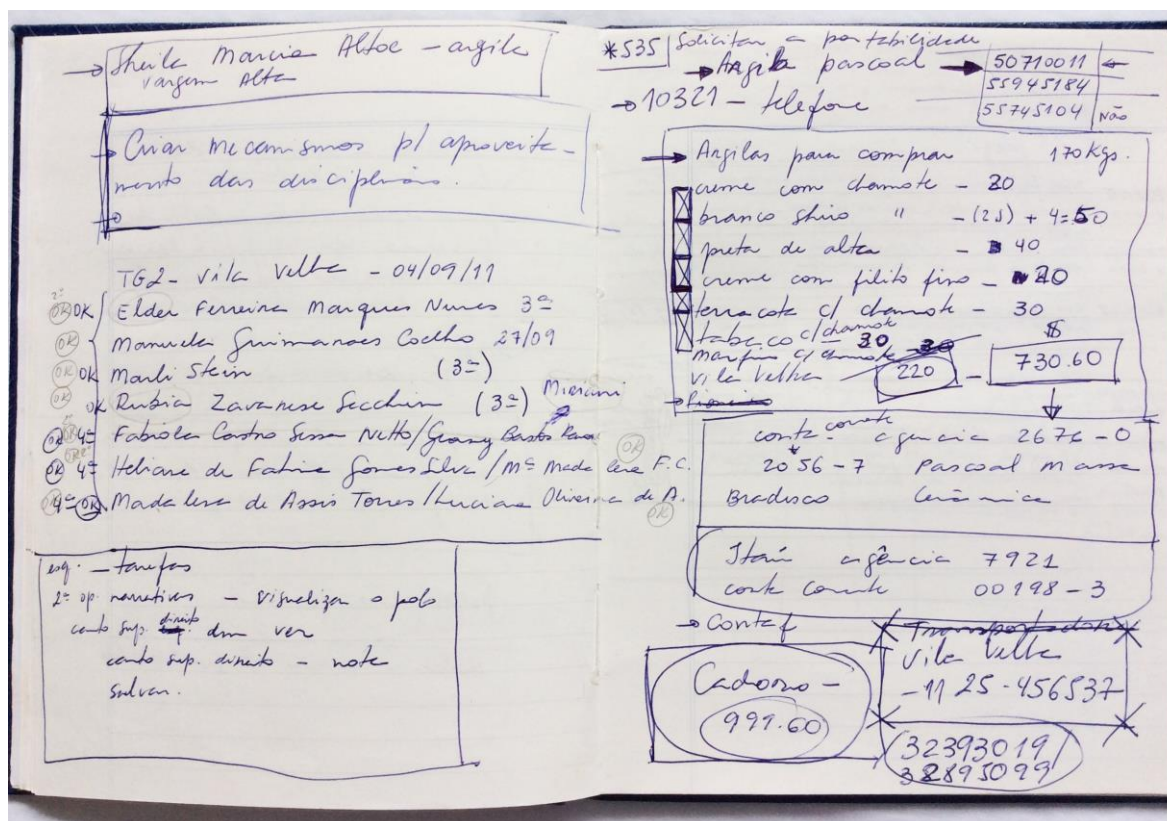 → Sheila Marcia Altoe – argila
vargem Alta
→ Criar mecanismos p/ aproveita-
mento das disciplinas.
TG2 - Vila Velha - 04/09/11
2ª
OK OK Elder Ferreira Marques Nunes 3ª
OK Manuela Guimaraes Coelho 27/09
OK OK Marli Stein (3ª)
OK OK Rubia Zavanese Secchim (3ª) Miriam
OK 4ª Fabiola Castro Sessa Netto/Geany Bastos
OK 4ª Heliane de Fatima Gomes Silva / Mª Madalena F.C. OK
OK 4ª OK Madalena de Assis Torres/Luciana Oliveira de A. OK
esq. – tarefas
2ª op. narrativas – visualizar o polo
canto sup. direito dm ver
canto sup. direito – nota
salvar.
*535 Solicitar a portabilidade
→ Argila pascoal → 50710011 ←
55945184
→ 10321 – telefone
55745104 não
→ Argilas para comprar 170 kgs.
creme com chamote – 20
branco shiro " – (25) + 4=50
preta de alta – 40
creme com filito fino – 20
terracota c/ chamote – 30
tabaco c/ chamote 30
marfim c/ chamote 30 $
Vila Velha 220 – 730.60
→ Pioneiro
conta corrente agencia 2676-0
2056-7 Pascoal Massa
Bradisco Cerâmica
Itaú agência 7921
conta corrente 00198-3
→ Conta f
Transportadora
Vila Velha
- 11 25-456537
Cadorno –
991.60
32393019
32895099